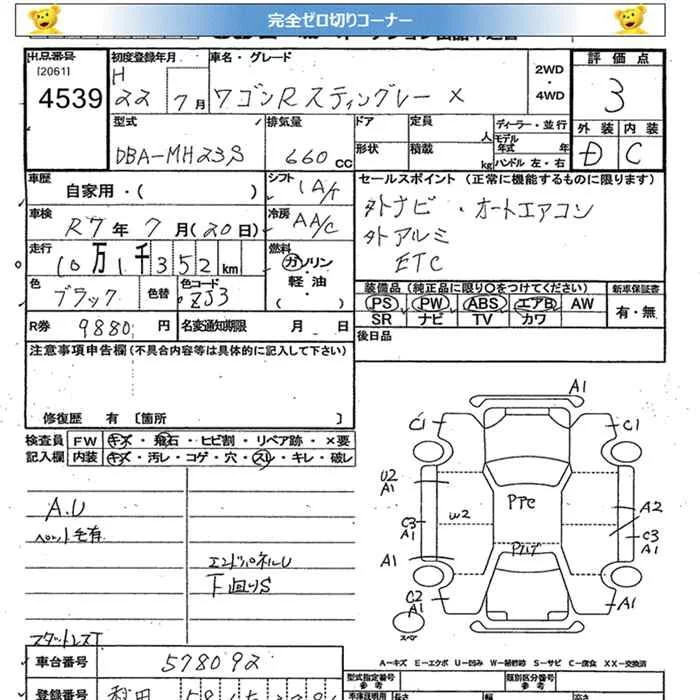 完全ゼロ切りコーナー
出品番号
[2061]
4539
初度登録年月
H
22 7月
車名・グレード
ワゴンRスティングレー X
2WD
・
4WD
評価点
3
型式
DBA-MH23S
排気量
660cc
ドア
形状
定員 人
積載 kg
ディーラー・並行
モデル年式 年
ハンドル 左・右
外装 内装
D C
車歴
自家用・( )
シフト
IA/T
セールスポイント (正常に機能するものに限ります)
外ナビ・オートエアコン
外アルミ
ETC
車検
R7年7月(20日)
冷房
AA/C
走行
10万1千352km
燃料
ガソリン
・
軽油
( )
色
ブラック
色替
色コード
ZJ3
装備品(純正品に限り○をつけてください)
PS PW ABS エアB AW
SR ナビ TV カワ
新車保証書
有・無
R券
9880円
名変通知期限 月 日
後日品
注意事項申告欄(不具合内容等は具体的に記入して下さい)
修復歴 有 〔箇所 〕
検査員
記入欄
FW キズ・飛石・ヒビ割・リペア跡・×要
内装 キズ・汚レ・コゲ・穴・スレ・キレ・破レ
A.U
ペット毛有
エンドパネルU
下回りS
スタットレスT
A1
C1
C1
U2
A1
w2
C3
A1
A1
C2
A1
A2
C3
A1
A1
スペア
A―キズ E―エクボ U―凹み W―補修跡 S―サビ C―腐食 XX―交換済
車台番号
578092
登録番号
型式指定番号
参考
類別区分番号
参考
長さ
幅
高さ